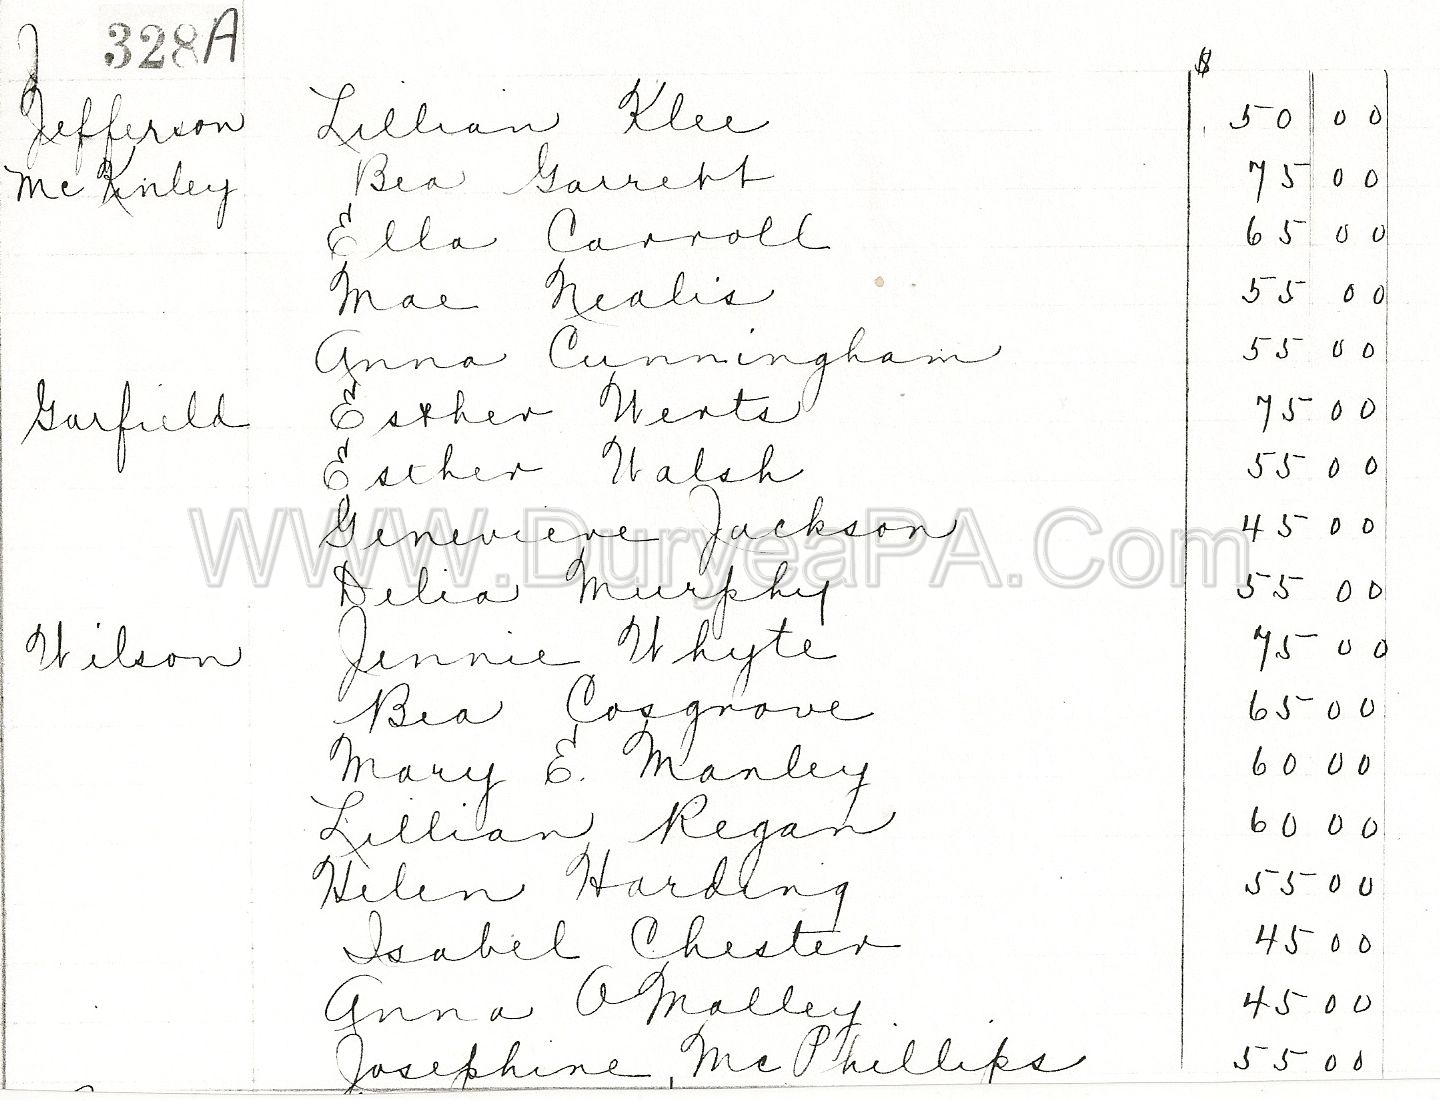 328A
$
Jefferson Lillian Klee 50 00
McKinley Bea Garrett 75 00
Ella Carroll 65 00
Mae Nealis 55 00
Anna Cunningham 55 00
Garfield Esther Werts 75 00
Esther Walsh 55 00
Genevieve Jackson 45 00
WWW.DuryeaPA.Com
Delia Murphy 55 00
Wilson Jennie Whyte 75 00
Bea Cosgrove 65 00
Mary E. Manley 60 00
Lillian Regan 60 00
Helen Harding 55 00
Isabel Chester 45 00
Anna O'Malley 45 00
Josephine McPhillips 55 00